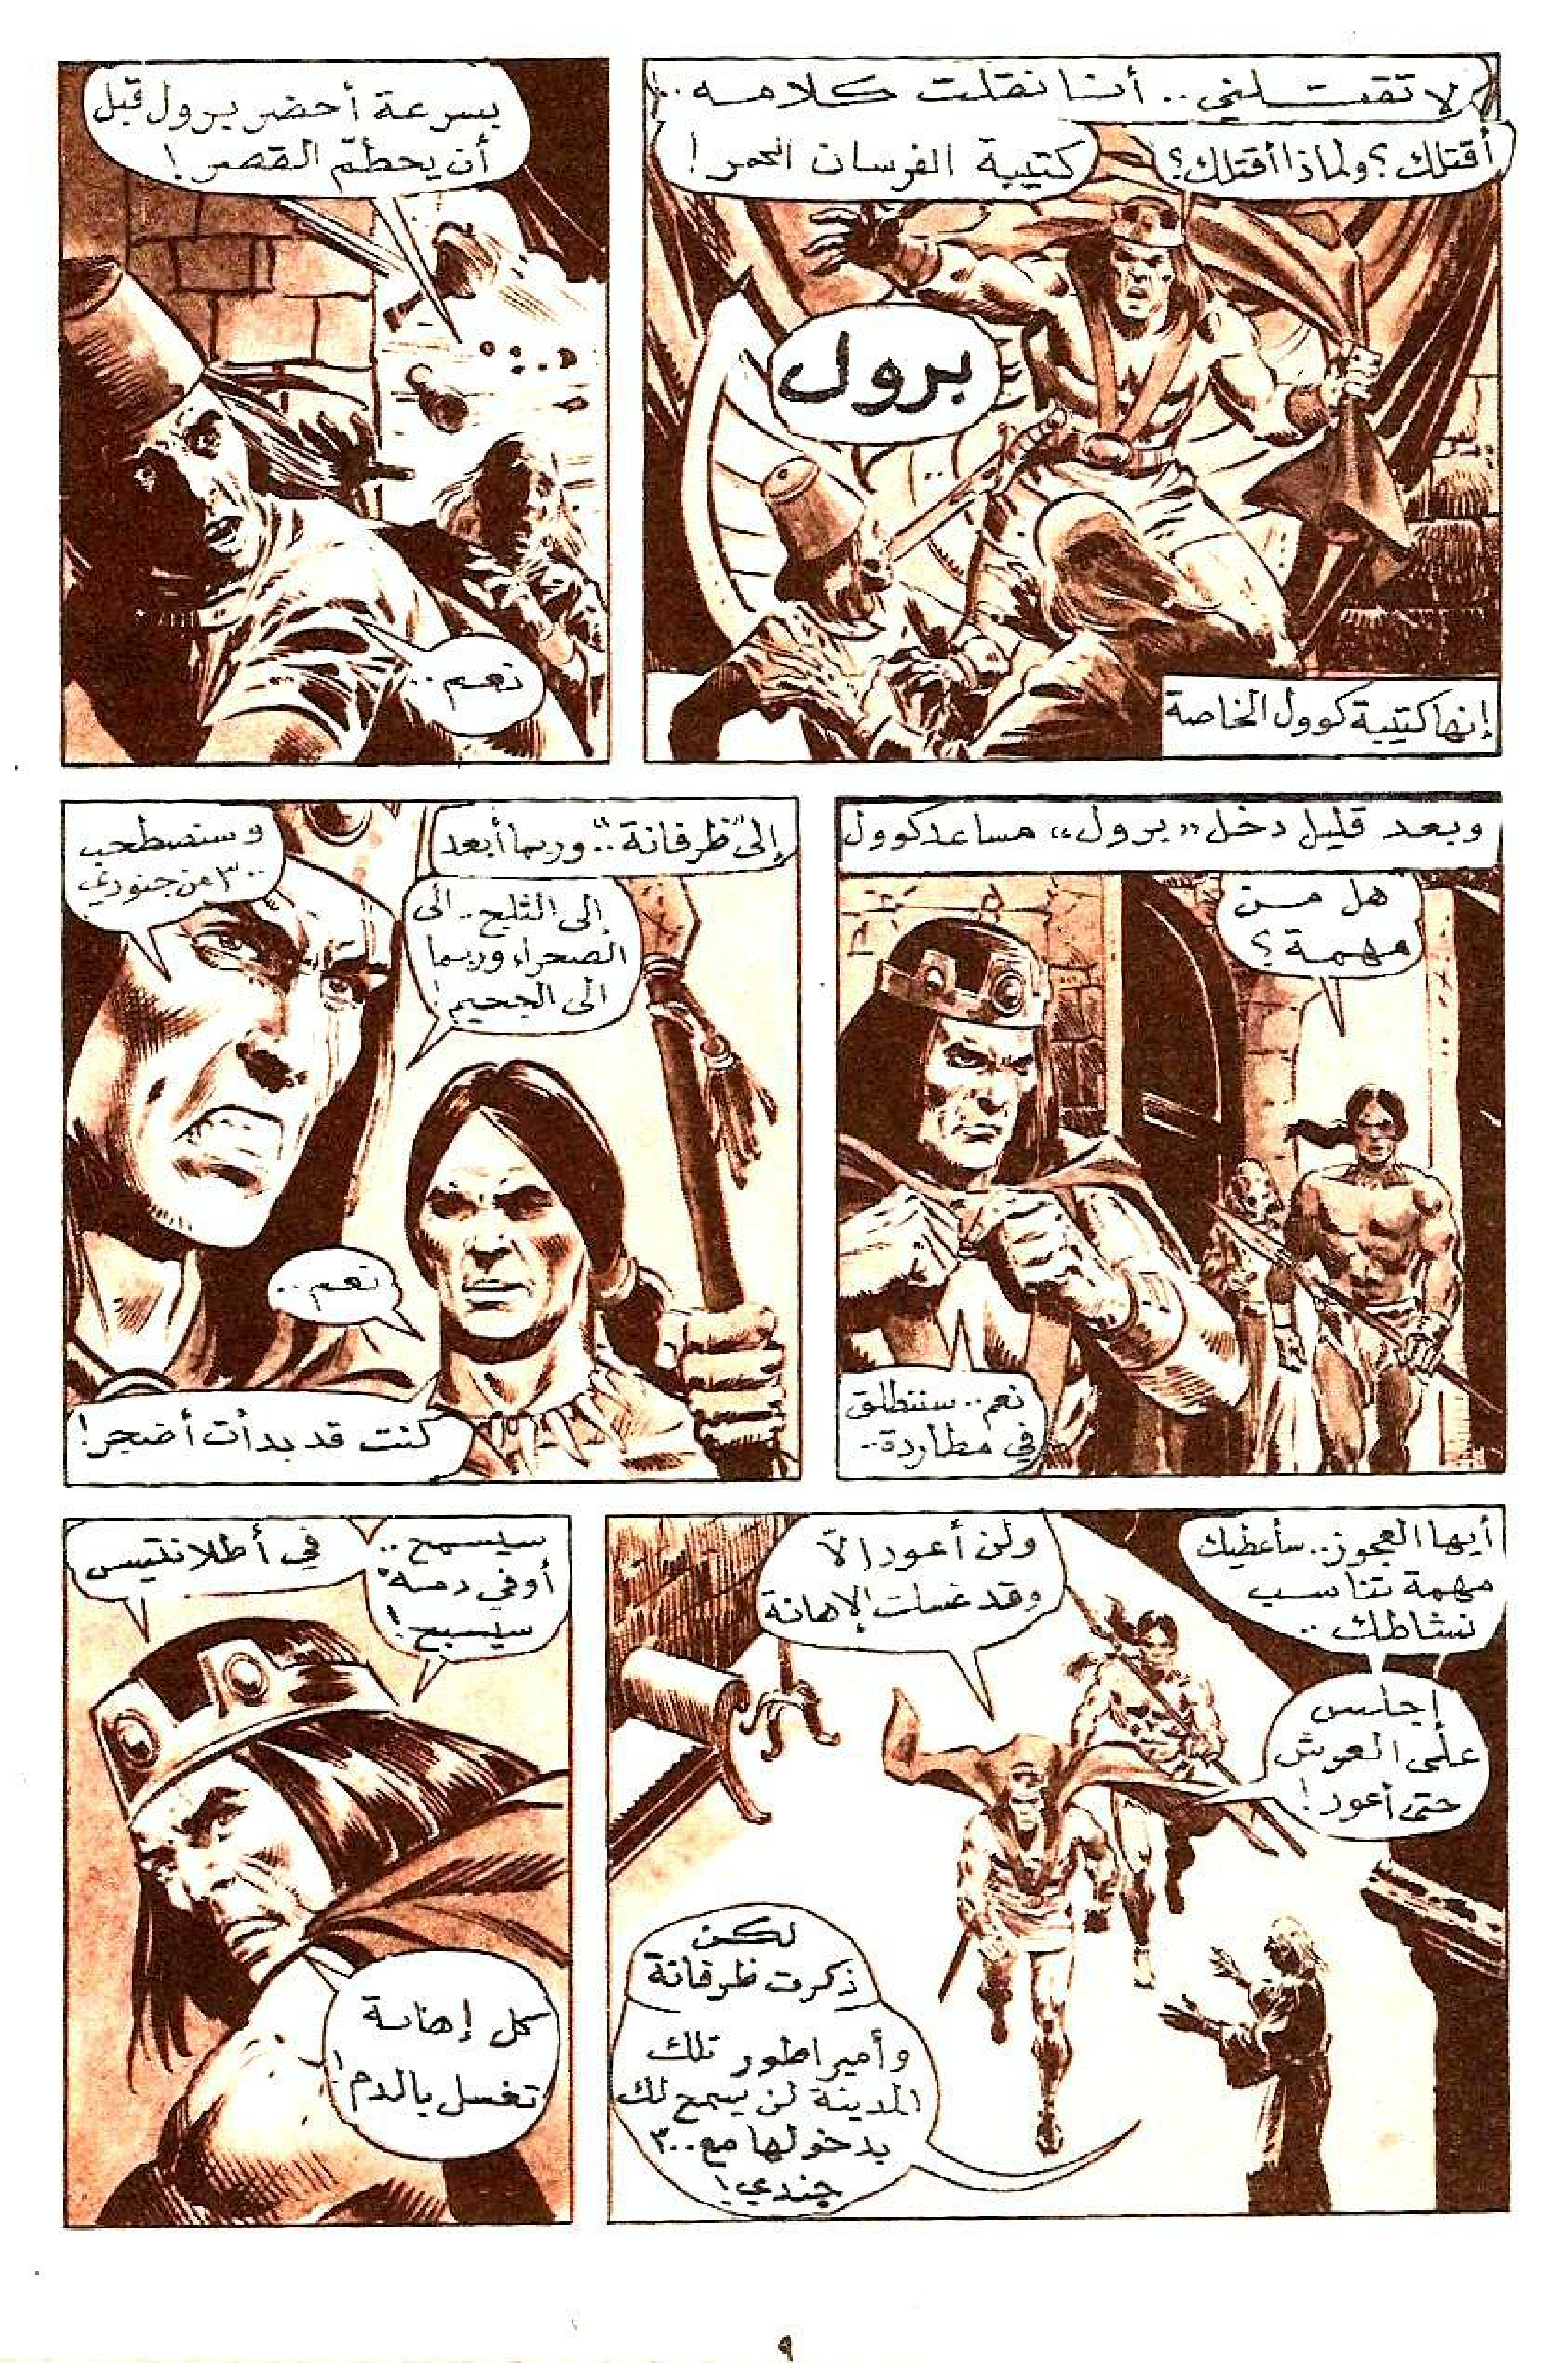 لا تقتلني .. أنا نقلت كلامه ..
أقتلك؟ ولماذا أقتلك؟
كتيبة الفرسان الحمر!
برول
إنها كتيبة كوول الخاصة
بسرعة أحضر برول قبل
أن يحطّم القصر!
نعم ..
وبعد قليل دخل «برول» مساعد كوول
هل من
مهمة؟
نعم.. سننطلق
في مطاردة..
إلى "ظرفانة".. وربما أبعد
إلى الثلج.. الى
الصحراء وربما
الى الجحيم!
وسنصطحب
٣٠٠ من جنودي
نعم..
كنت قد بدأت أضجر!
أيها العجوز.. سأعطيك
مهمة تناسب
نشاطك ..
إجلس
على العرش
حتى أعود!
ولن أعود إلاّ
وقد غسلت الإهانة
لكن
ذكرت ظرفانة
وأمبراطور تلك
المدينة لن يسمح لك
بدخولها مع ٣٠٠
جندي!
سيسمح ..
أو في دمه
سيسبح!
في أطلانتيس
كل إهانة
تغسل بالدم!
٩